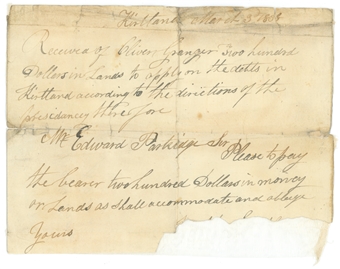 Kirtland March
Received of Oliver Granger two hundred
Dollars in Lands to apply on the debts in
Kirtland according to the directions of the
presedancy therefore
Mr Edward Partridge Sir Please to pay
the bearer two hundred Dollars in money
or Lands as shall accommodate and oblige
Yours